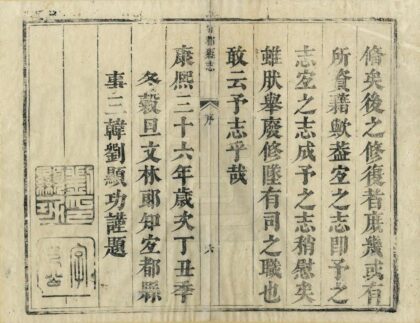 脩矣後之修復者庶幾或有
所資藉歟蓋宜之志即予之
志宜之志成予之志稍慰矣
雖肰舉廢修墜有司之職也
敢云予志乎哉
宜都縣志
序
六
康熙三十六年歲次丁丑季
冬穀旦文林郎知宜都縣
事三韓劉顯功謹題